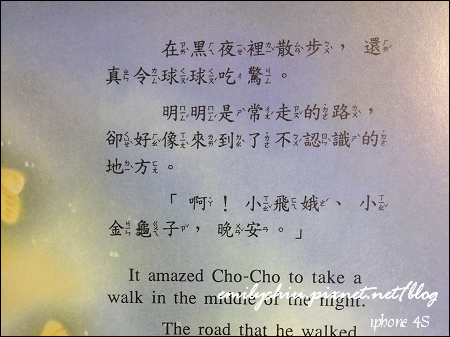 在黑夜裡散步，還
真令球球吃驚。
明明是常走的路，
卻好像來到了不認識的
地方。
「啊！小飛娥、小
金龜子，晚安。」
It amazed Cho-Cho to take a
walk in the middle of the night.
emilychiu.pixnet.net/blog
The road that he walked
iphone 4S